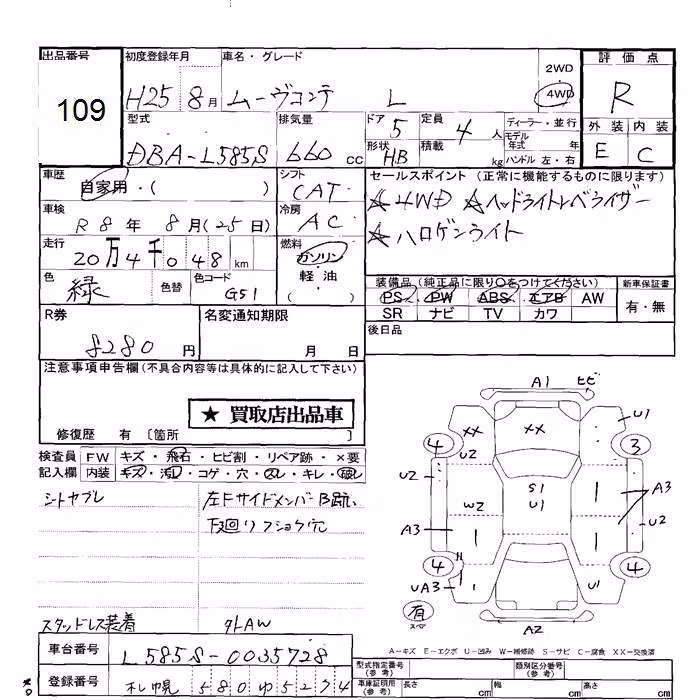 出品番号 109
初度登録年月 H25 8月
車名・グレード ムーヴコンテ L
2WD 4WD
評価点 R
外装 E 内装 C
型式 DBA-L585S
排気量 660 cc
ドア 5 定員 4 人
形状 HB 積載 kg
ディーラー・並行
モデル年式 年
ハンドル 左・右
車歴 自家用・( )
シフト CAT
セールスポイント (正常に機能するものに限ります)
☆4WD ☆ヘッドライトレベライザー
☆ハロゲンライト
車検 R8年 8月(25日)
冷房 AC
走行 20万4千048km
燃料 ガソリン 軽油 ( )
色 緑 色替 色コード G51
装備品 (純正品に限り○をつけてください) 新車保証書
PS PW ABS エアB AW 有・無
SR ナビ TV カワ
R券 8280円
名変通知期限 月 日
後日品
注意事項申告欄(不具合内容等は具体的に記入して下さい)
★ 買取店出品車
修復歴 有 〔箇所 〕
検査員 FW キズ・飛石・ヒビ割・リペア跡・×要
記入欄 内装 キズ・汚レ・コゲ・穴・スレ・キレ・破レ
シートヤブレ
左Fサイドメンバー
下廻り
スタッドレス装着 外AW
車台番号 L585S-0035728
登録番号 札幌 580ゆ5274
A1 ヒビ
4 XX U2 XX U1 3
U2 W2 S1 U1 A3 U2
A3
4 UA3 U1 4
有 スペア
A2
A-キズ E-エクボ U-凹み W-補修跡 S-サビ C-腐食 XX-交換済
型式指定番号(参考) 類別区分番号(参考)
車庫証明用(参考) 長さ cm 幅 cm 高さ cm